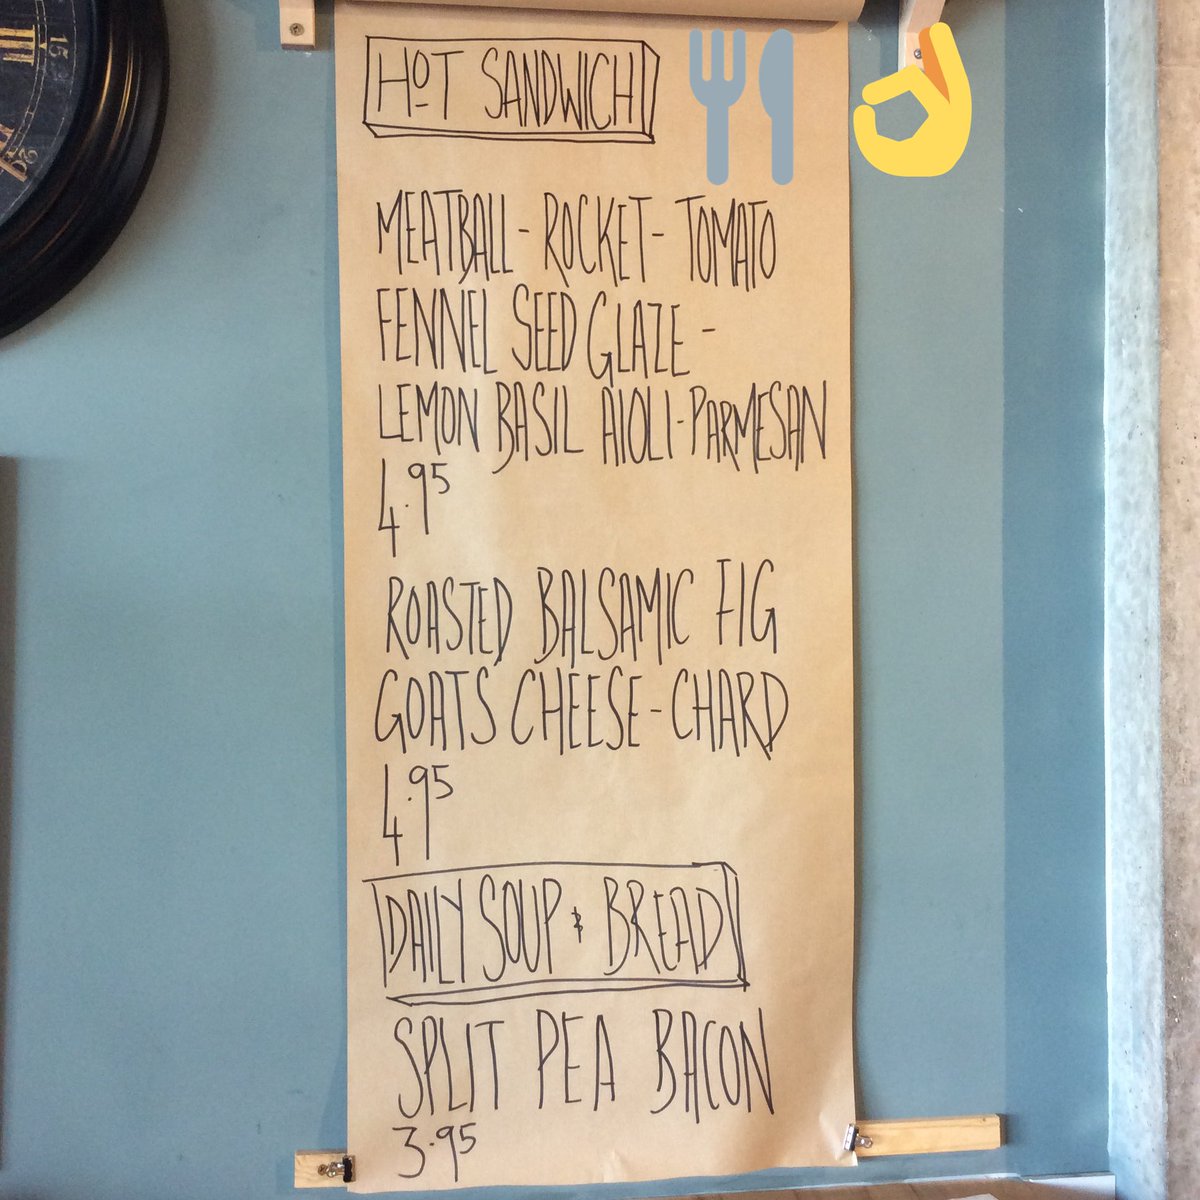 HOT SANDWICH
MEATBALL - ROCKET - TOMATO
FENNEL SEED GLAZE -
LEMON BASIL AIOLI - PARMESAN
4.95
ROASTED BALSAMIC FIG
GOATS CHEESE - CHARD
4.95
DAILY SOUP & BREAD
SPLIT PEA BACON
3.95
15
20